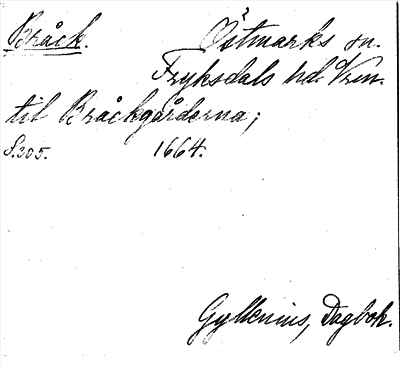 Bråck. Östmarks sn.
Fryksdals hd. Vrm.
til Bråckgårderna;
S.305. 1664.
Gyllenius, Dagbok.